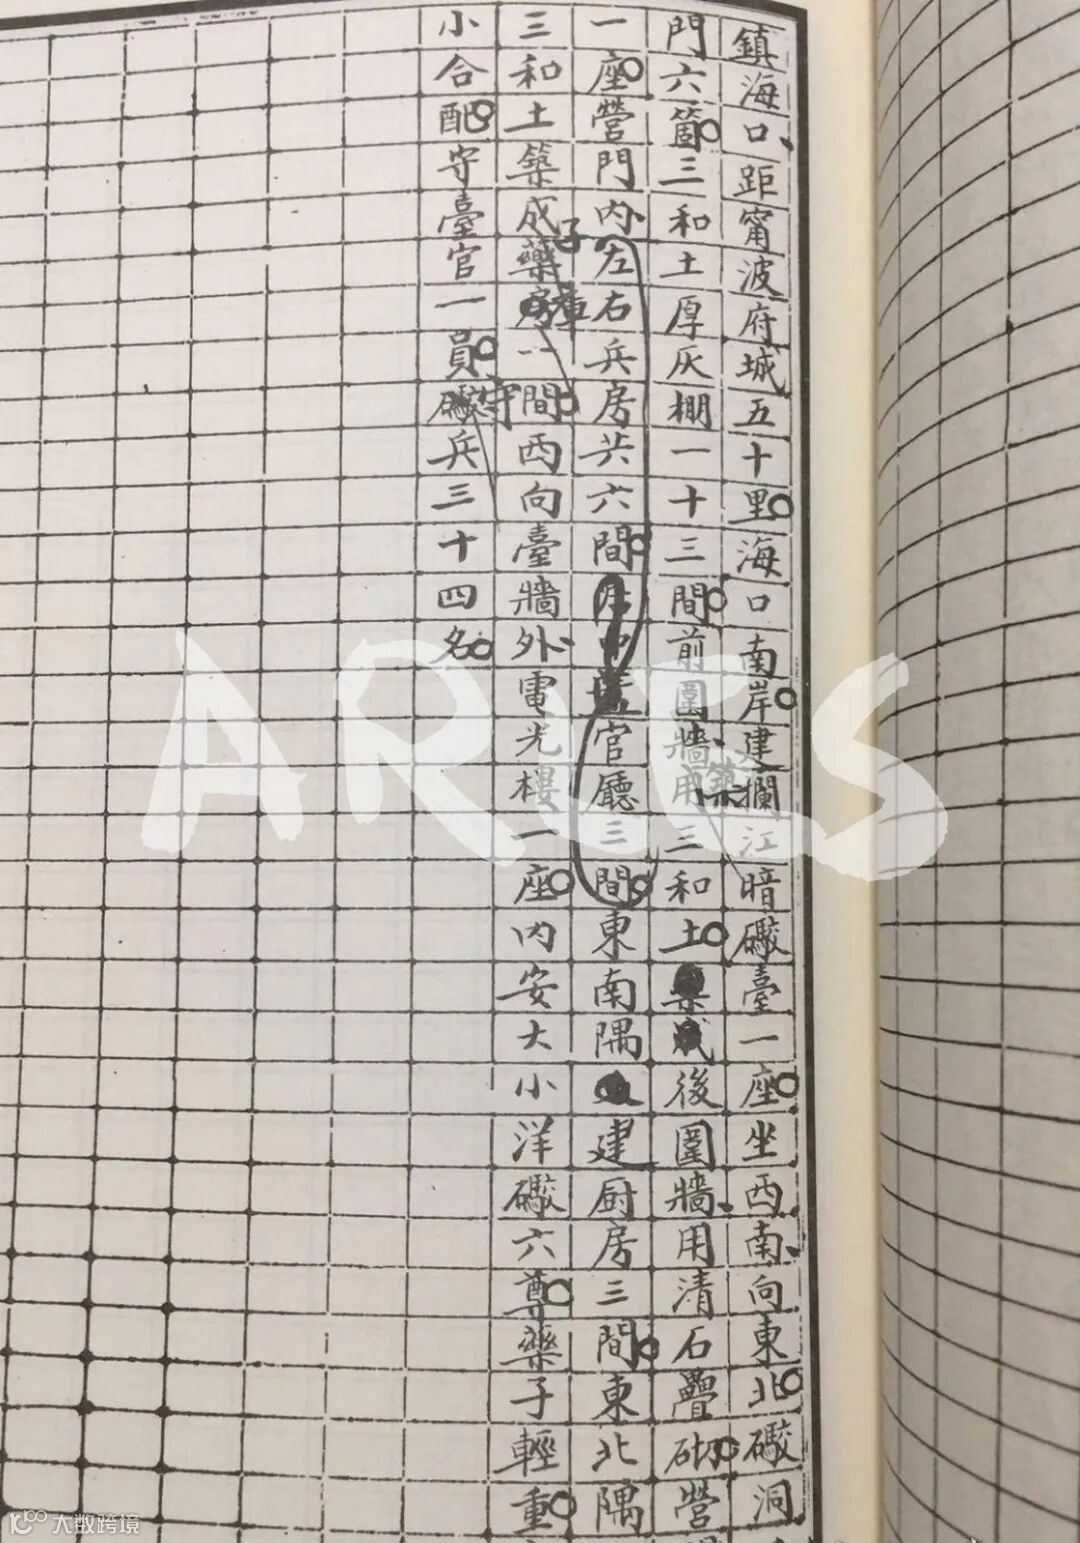 鎮海口距甯波府城五十里海口南岸建攔江暗礮臺一座坐西南向東北礮洞
門六箇三和土厚灰棚一十三間前圍牆用築三和土後圍牆用清石疊砌營
一座營門內左右兵房共六間官廳三間東南隅建厨房三間東北隅
三和土築成藥子庫一間西向臺牆外電光樓一座內安大小洋礮六尊藥子輕重
小合配守臺官一員守兵三十四名
ARTES
大数跨境